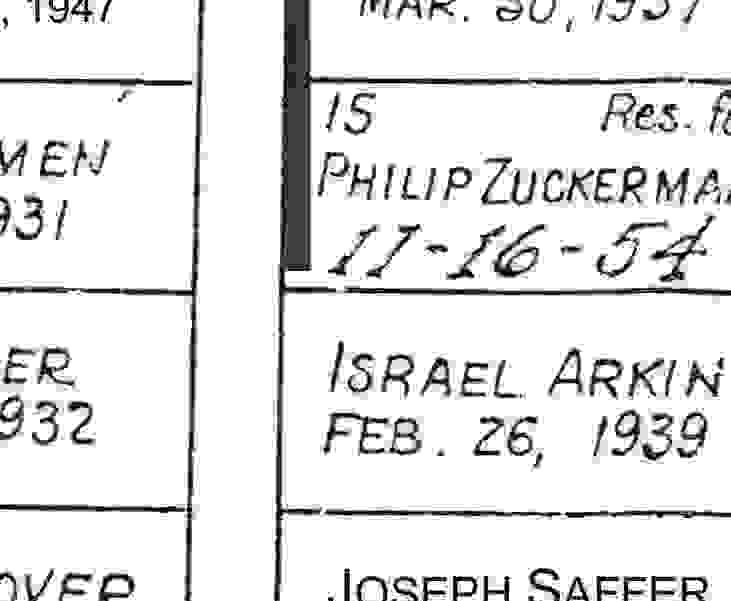 , 1947
MEN
931
ER
932
OVER
MAR. 30, 1937
15 Res. fo
PHILIP ZUCKERMAN
11-16-54
ISRAEL ARKIN
FEB. 26, 1939
JOSEPH SAFFER